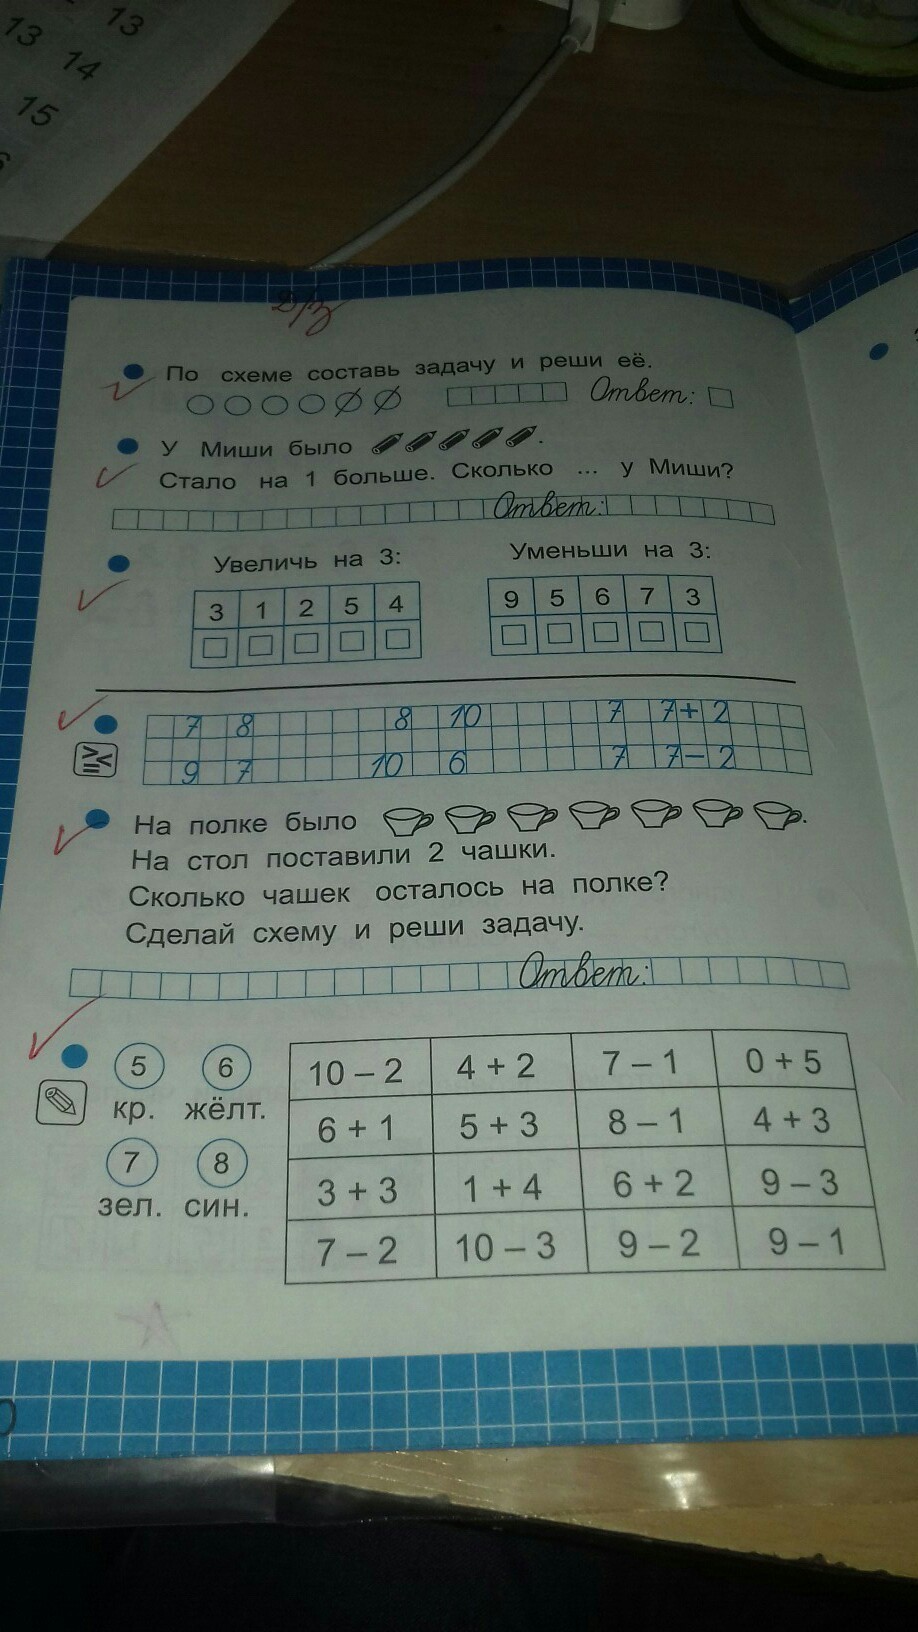 13
13
14
15
Д/з
По схеме составь задачу и реши её.
Ответ:
У Миши было .
Стало на 1 больше. Сколько ... у Миши?
Ответ:
Увеличь на 3: Уменьши на 3:
3 1 2 5 4 9 5 6 7 3
7 8 8 10 7 7+2
9 7 10 6 7 7-2
> < =
На полке было .
На стол поставили 2 чашки.
Сколько чашек осталось на полке?
Сделай схему и реши задачу.
Ответ:
5 6
кр. жёлт.
7 8
зел. син.
10 – 2 4 + 2 7 – 1 0 + 5
6 + 1 5 + 3 8 – 1 4 + 3
3 + 3 1 + 4 6 + 2 9 – 3
7 – 2 10 – 3 9 – 2 9 – 1